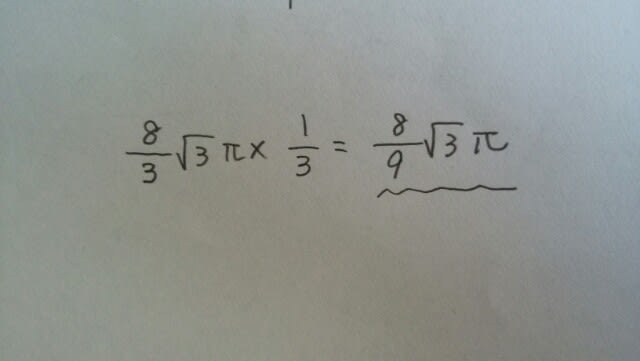 8/3 √3 π × 1/3 = 8/9 √3 π